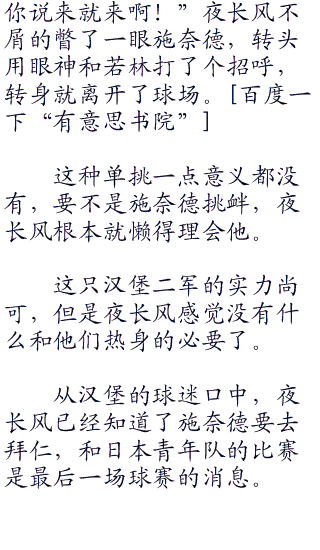 你说来就来啊！”夜长风不
屑的瞥了一眼施奈德，转头
用眼神和若林打了个招呼，
转身就离开了球场。[百度一
下“有意思书院”]
这种单挑一点意义都没
有，要不是施奈德挑衅，夜
长风根本就懒得理会他。
这只汉堡二军的实力尚
可，但是夜长风感觉没有什
么和他们热身的必要了。
从汉堡的球迷口中，夜
长风已经知道了施奈德要去
拜仁，和日本青年队的比赛
是最后一场球赛的消息。